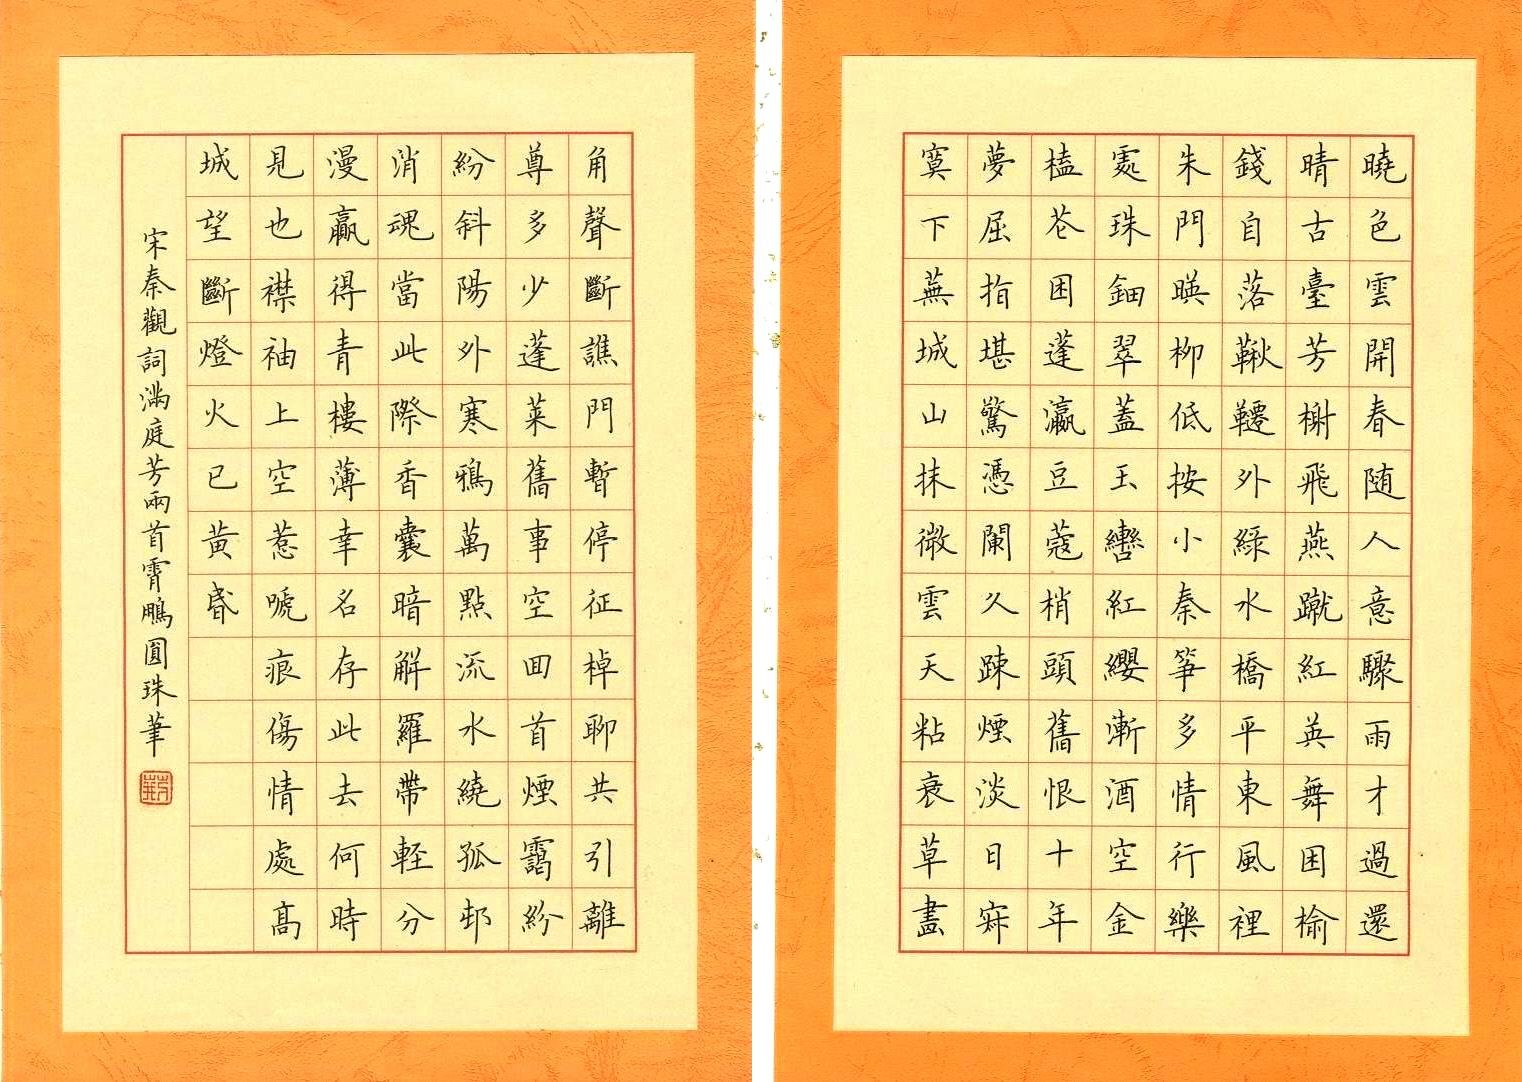 曉色雲開春随人意驟雨才過還
晴古臺芳榭飛燕蹴紅英舞困榆
錢自落鞦韆外緑水橋平東風裡
朱門暎柳低按小秦筝多情行樂
䖏珠鈿翠蓋玉轡紅纓漸酒空金
榼芲困蓬瀛豆蔻梢頭舊恨十年
夢屈指堪驚憑闌久踈煙淡日寂
寞下蕪城山抹微雲天粘衰草畫
角聲斷譙門暫停征棹聊共引離
尊多少蓬萊舊事空囬首煙靄紛
紛斜陽外寒鴉萬點流水繞孤邨
消魂當此際香囊暗解羅帶軽分
漫贏得青樓薄幸名存此去何時
見也襟袖上空惹嗁痕傷情處高
城望斷燈火已黃昏
宋秦觀詞滿庭芳兩首霄鵬圓珠筆